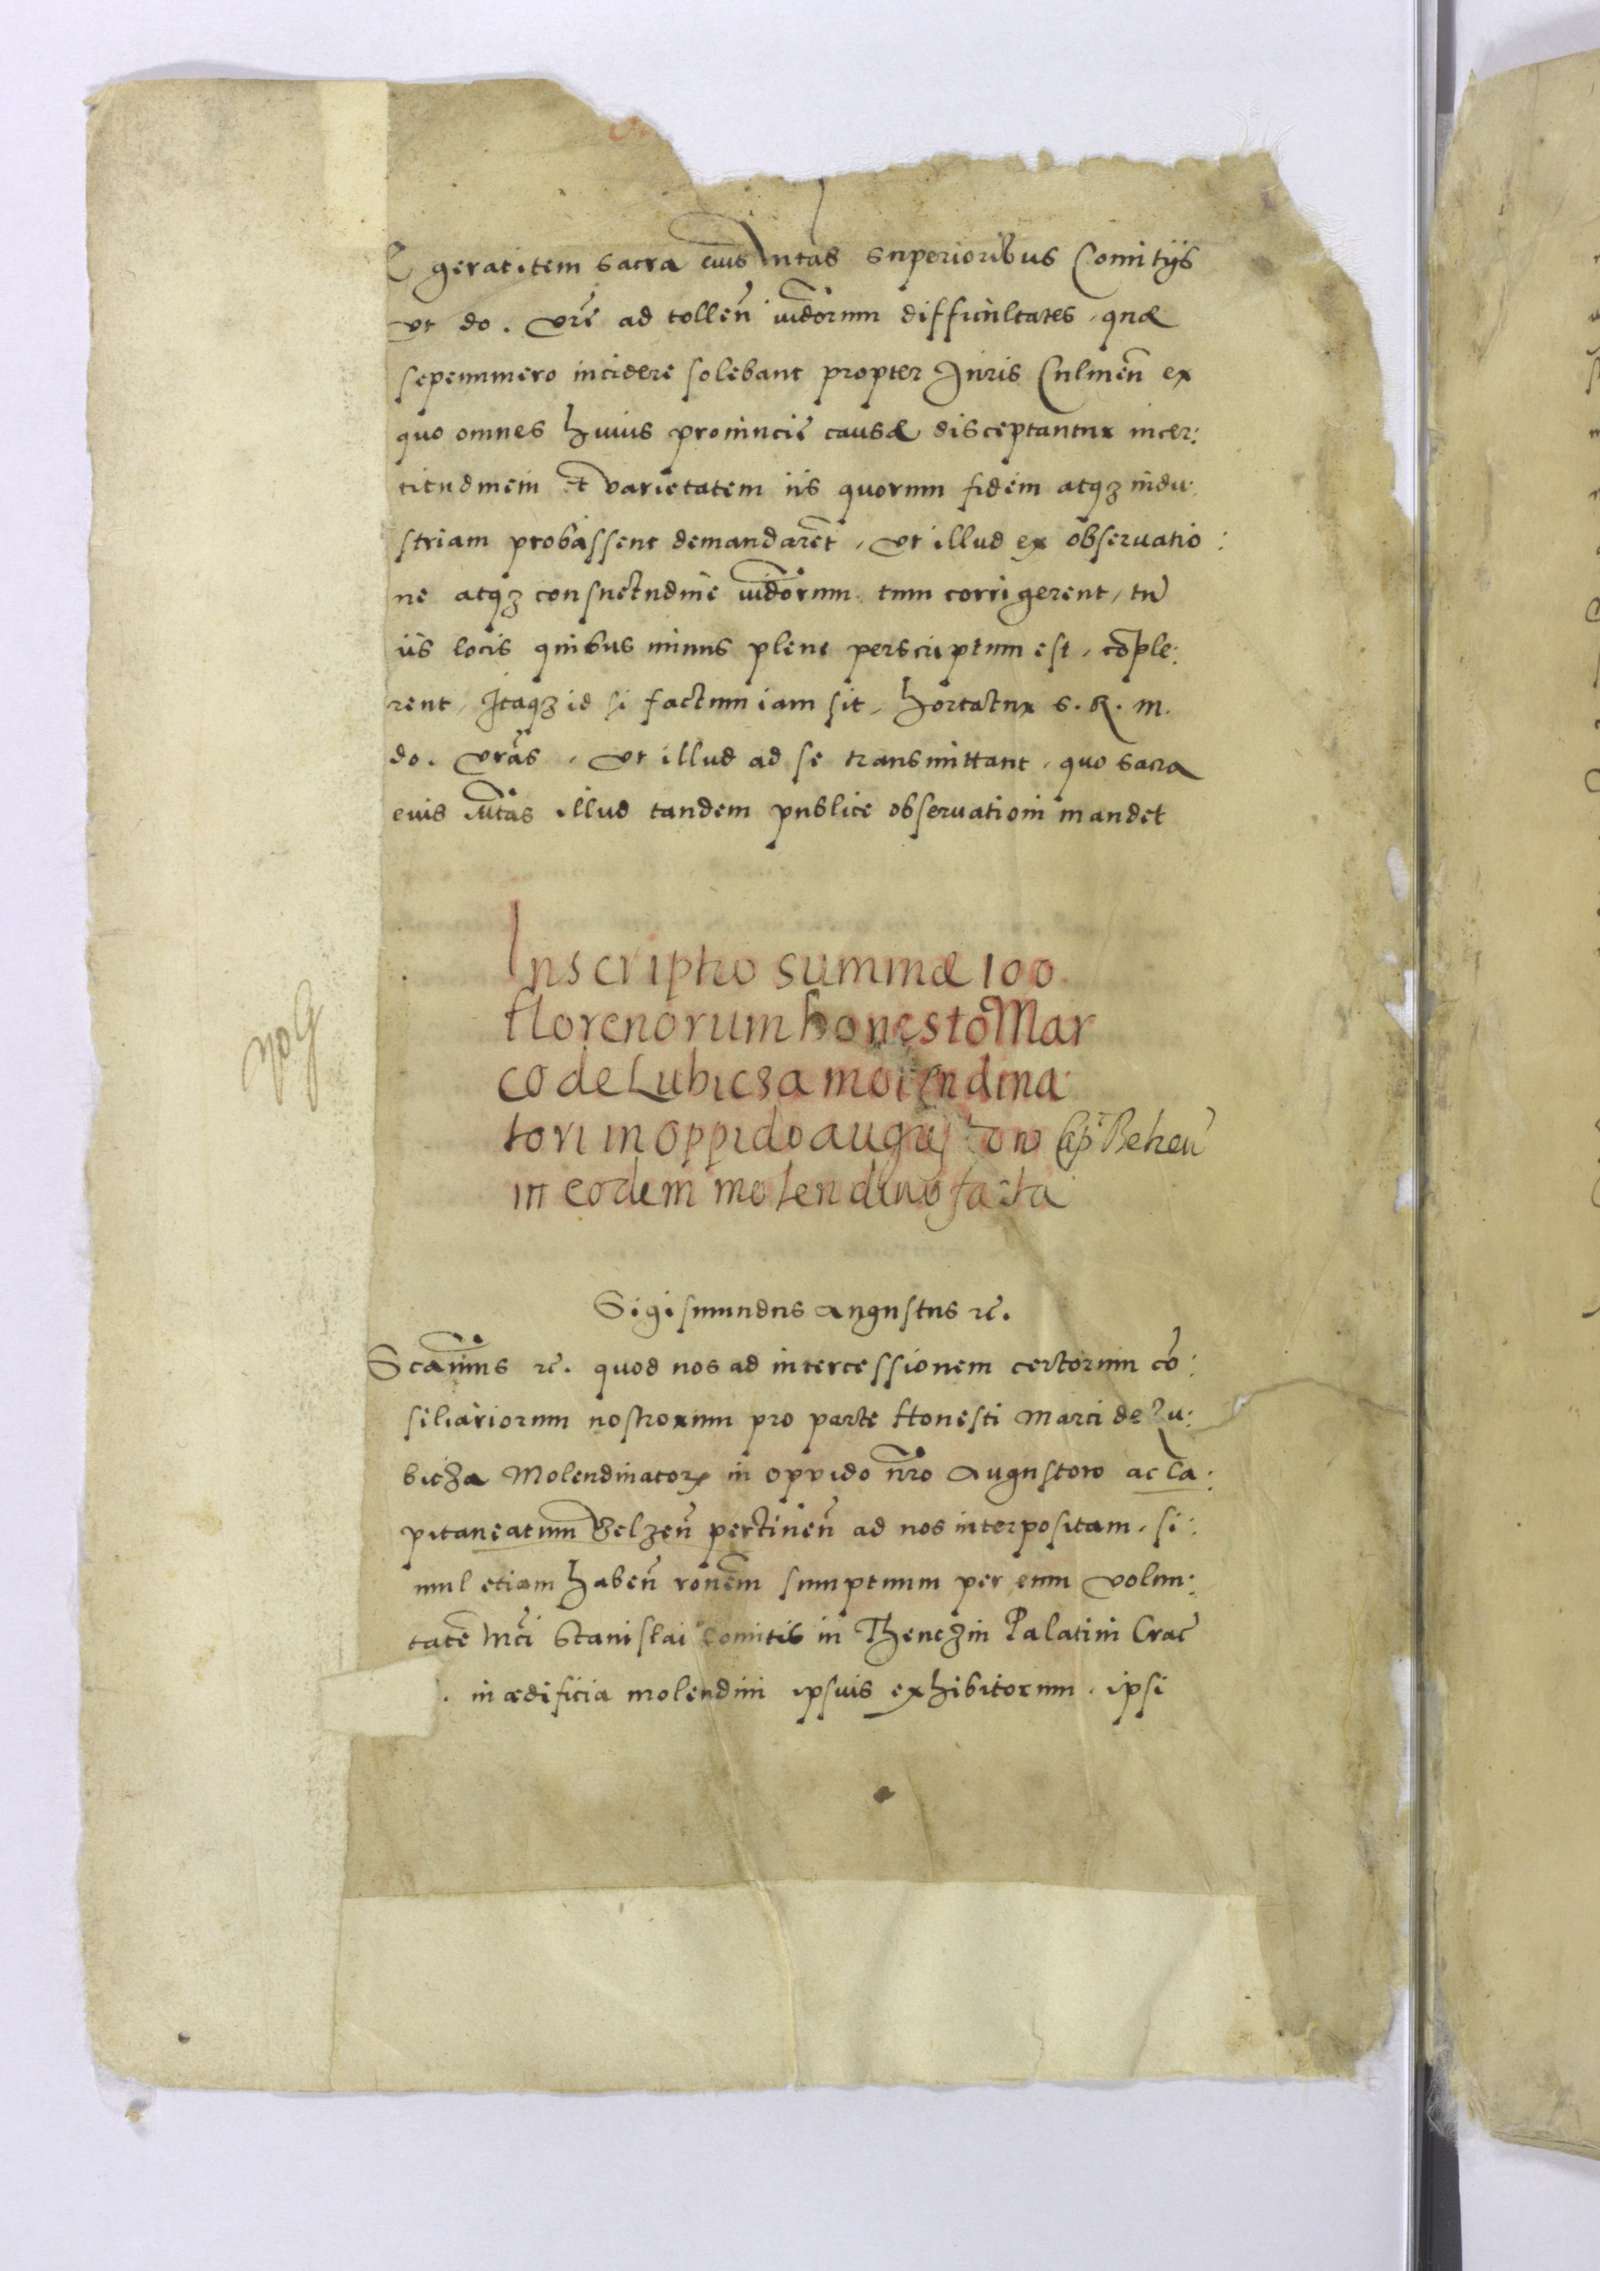 Egerat item sacra eius Mtas superioribus Comitijs
vt do. vrē ad tollen̄ iudiorum difficultates, quæ
sepenumero incidere solebant propter Juris Culmen̄ ex
quo omnes huius prouinciē causæ disceptantur incer:
titudinem et varietatem iis quorum fidem atqȝ indu:
striam probassent demandarēt, vt illud ex obseruatio:
ne atqȝ consuetudine iudiorum tum corrigerent, tū
iis locis quibus minus plene perscriptum est, cōple:
rent, Itaqȝ id si factum iam sit, hortatur S. R. M.
do. vrās, vt illud ad se transmittant, quo sacra
eius Mtas illud tandem publice obseruationi mandet
Inscriptio summæ 100
florenorum honesto Mar
co de Lubicza molendina
tori in oppido augustow Cap. Belzen̄
in eodem molendino facta
Sigismundus Augustus rē.
Scamus rē. quod nos ad intercessionem certorum cō:
siliariorum nostrorum pro parte Honesti Marci de Lu:
bicza Molendinatoris in oppido nr̄o Augustow ac Ca:
pitaneatum Belzen̄ pertinen̄ ad nos interpositam, si:
mul etiam haben̄ ronem sumptuum per eum volun:
tatē Mci Stanislai Comitis in Thenczin Palatini Crac̄
in ædificia molendini ipsius exhibitorum, ipsi